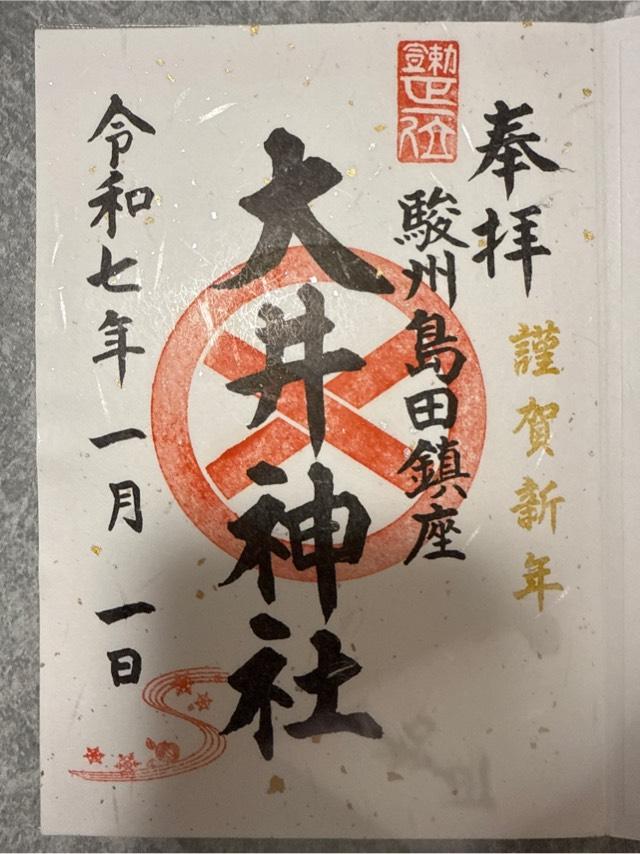 奉拝
謹賀新年
勅宣正一位
駿州島田鎮座
大井神社
令和七年 一月 一日